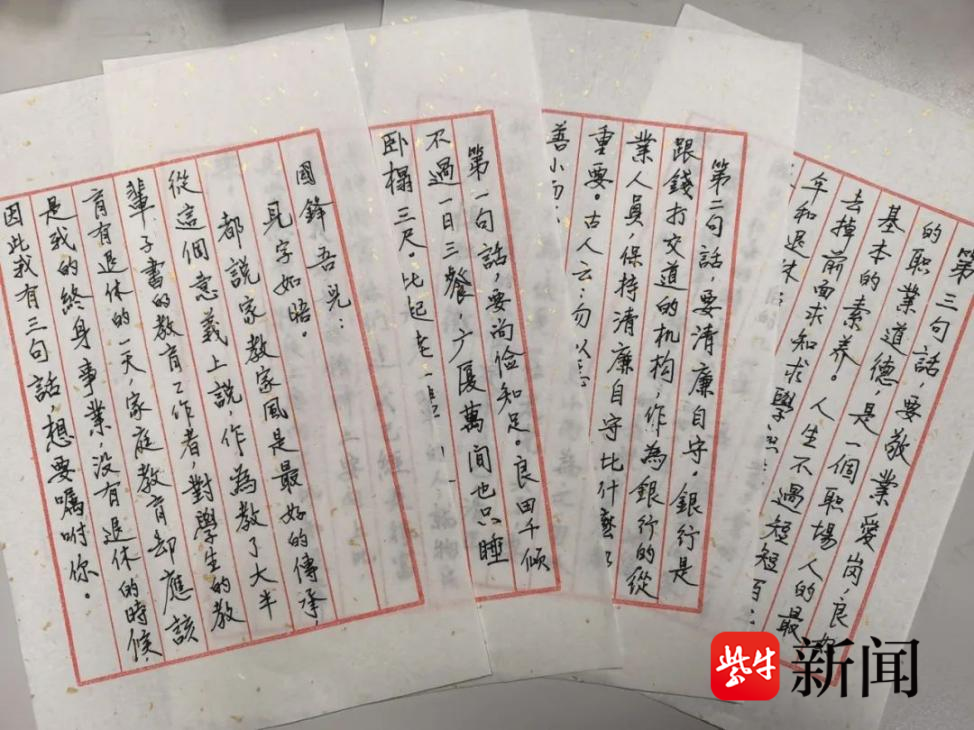 國鋒吾兒：
見字如晤。
都説家教家風是最好的傳承
從這個意義上説，作為教了大半
輩子書的教育工作者，對學生的教
育有退休的一天，家庭教育却應該
是我的終身事業，没有退休的時候，
因此我有三句話，想要囑咐你。
第一句話，要尚俭知足。良田千傾
不過一日三餐，广厦萬間也只睡
卧榻三尺。比起老一
第二句話，要清廉自守，銀行是
跟錢打交道的机构，作為銀行的從
業人員，保持清廉自守比什
重要。古人云：勿以
善小而
第三句話，要敬業愛岗，良好
的职業道德，是一個职場人的最
基本的素养。人生不過短短百
去掉前面求知求學
年和退休
紫牛新闻